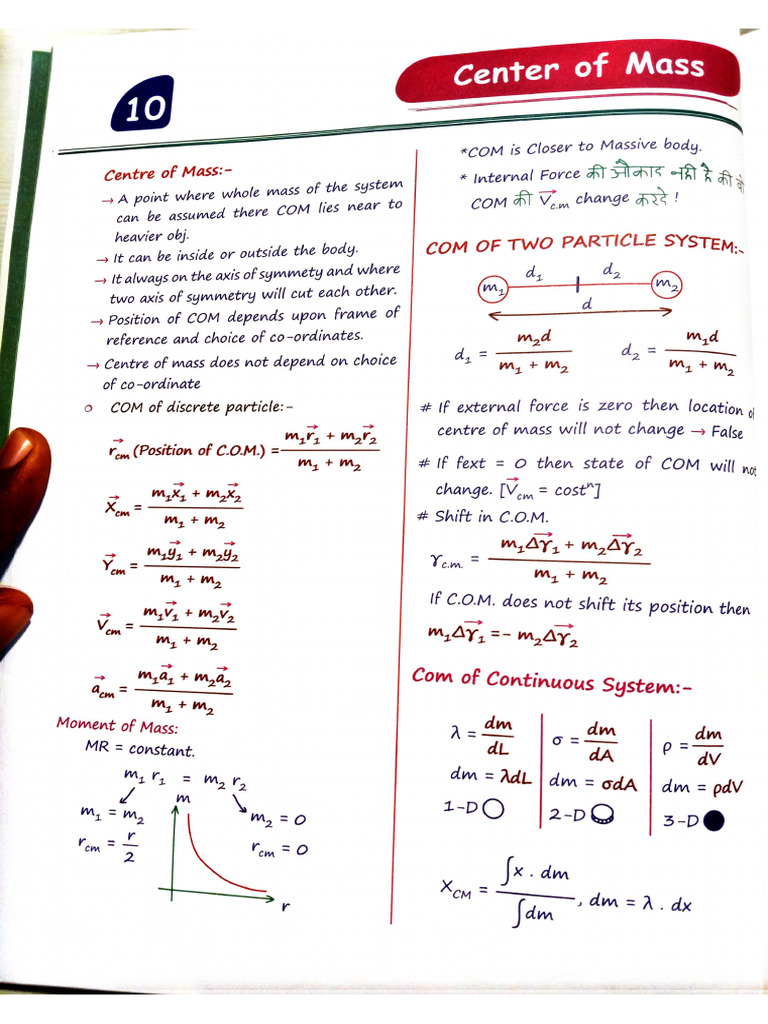 Center of Mass
10
Centre of Mass:-
→ A point where whole mass of the system
can be assumed there COM lies near to
heavier obj.
→ It can be inside or outside the body.
→ It always on the axis of symmety and where
two axis of symmetry will cut each other.
→ Position of COM depends upon frame of
reference and choice of co-ordinates.
→ Centre of mass does not depend on choice
of co-ordinate
○ COM of discrete particle:-
r⃗cm (Position of C.O.M.) = (m₁r⃗₁ + m₂r⃗₂) / (m₁ + m₂)
X⃗cm = (m₁x⃗₁ + m₂x⃗₂) / (m₁ + m₂)
Y⃗cm = (m₁y⃗₁ + m₂y⃗₂) / (m₁ + m₂)
V⃗cm = (m₁v⃗₁ + m₂v⃗₂) / (m₁ + m₂)
a⃗cm = (m₁a⃗₁ + m₂a⃗₂) / (m₁ + m₂)
Moment of Mass:
MR = constant.
m₁ r₁ = m₂ r₂
m₁ = m₂
rcm = r/2
m
r
m₂ = 0
rcm = 0
*COM is Closer to Massive body.
* Internal Force की औकाद नही है की वो
COM की V⃗c.m change करदे !
COM OF TWO PARTICLE SYSTEM:-
m₁ d₁ d₂ m₂
d
d₁ = m₂d / (m₁ + m₂) d₂ = m₁d / (m₁ + m₂)
# If external force is zero then location of
centre of mass will not change → False
# If fext = 0 then state of COM will not
change. [V⃗cm = costⁿ]
# Shift in C.O.M.
r c.m. = (m₁Δr⃗₁ + m₂Δr⃗₂) / (m₁ + m₂)
If C.O.M. does not shift its position then
m₁Δr⃗₁ = - m₂Δr⃗₂
Com of Continuous System:-
λ = dm/dL σ = dm/dA ρ = dm/dV
dm = λdL dm = σdA dm = ρdV
1-D 2-D 3-D
XCM = ∫x . dm / ∫dm , dm = λ . dx